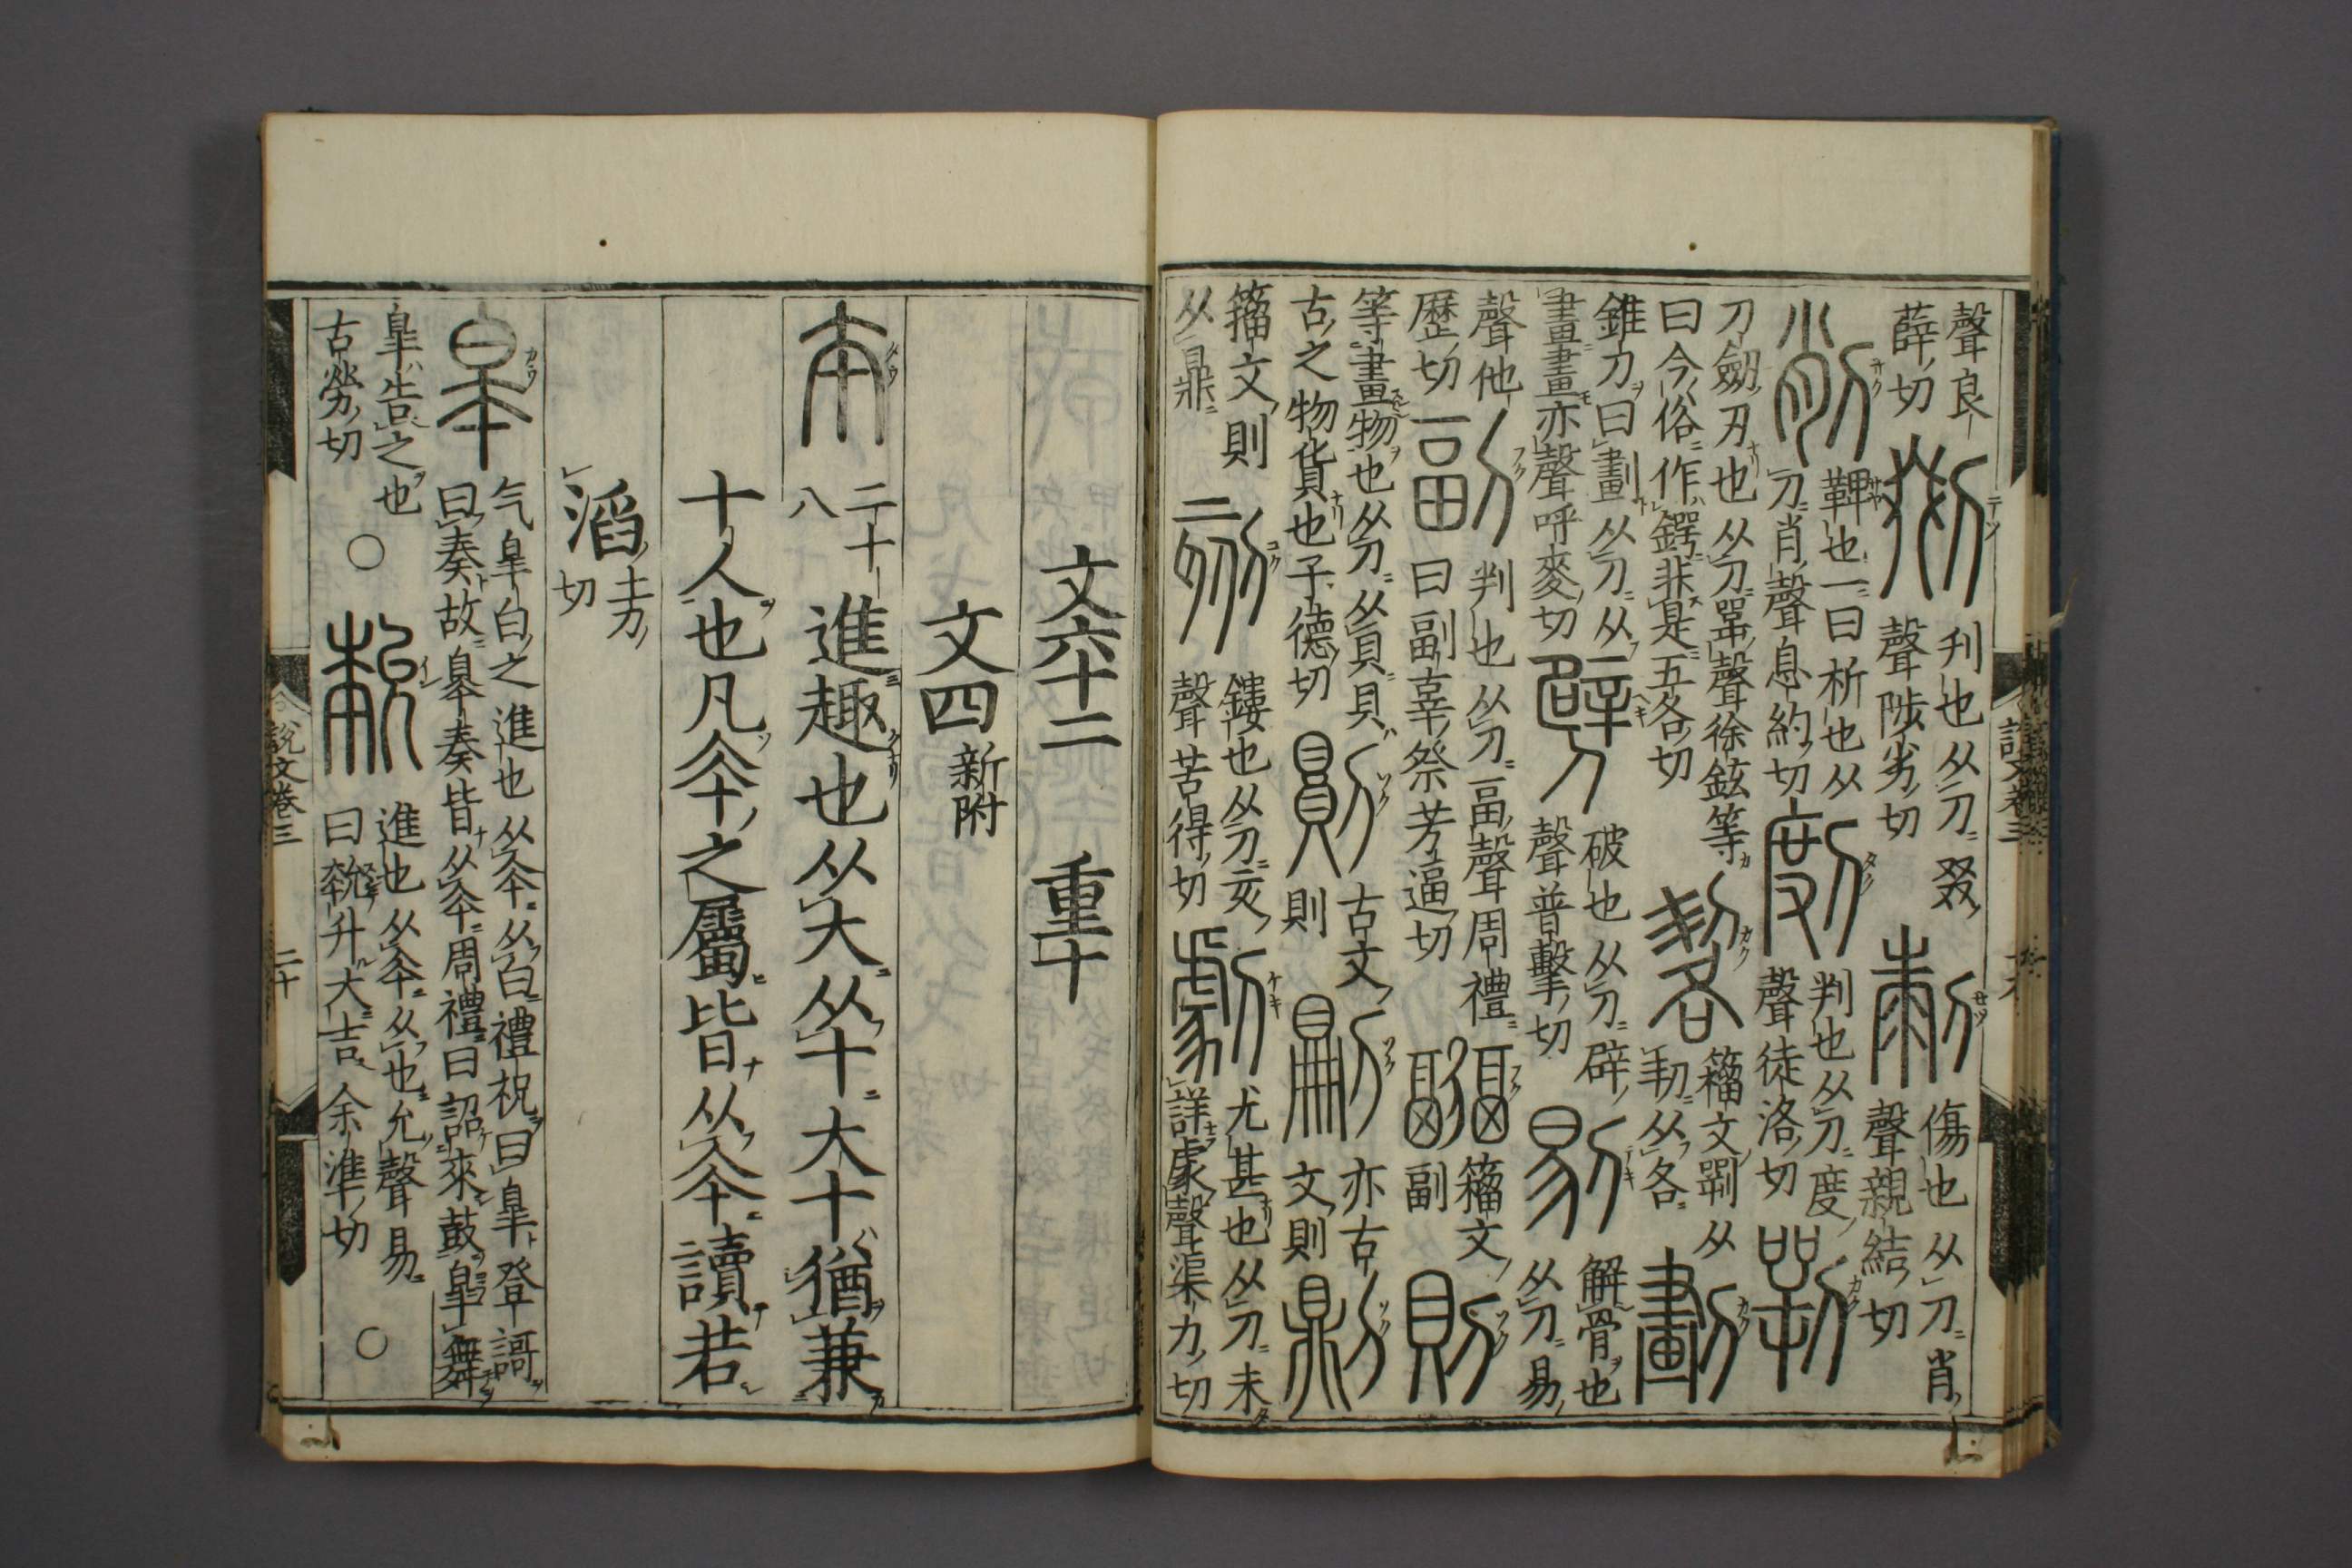 聲良
薛切
剟
刊也从刀叕
聲陟劣切
傷也从刀肖
聲親結切
削
鞞也一曰析也从
刀肖聲息約切
剫
判也从刀度
聲徒洛切
刀劒刃也从刀咢聲徐鉉等
曰今俗作鍔非是五各切
籀文㓵从
㓞从各
劃
錐刀曰劃从刀从
畫畫亦聲呼麥切
劈
破也从刀辟
聲普擊切
剔
解骨也
从刀易
聲他
歷切
副
判也从刀畐聲周禮
曰副辜祭芳逼切
疈
籀文
副
則
等畫物也从刀从貝貝
古之物貨也子德切
古文
則
亦古
文則
籀文則
从鼎
刻
鏤也从刀亥
聲苦得切
劇
尤甚也从刀未
詳豦聲渠力切
文六十二 重十
文四 新附
夲 二十八 進趣也从大从十大十猶兼
十人也凡夲之屬皆从夲讀若
滔土刀切
皋
气皋白之進也从夲从白禮祝曰皋登謌
曰奏故皋奏皆从夲周禮曰詔來鼓皋舞
皋告之也
古勞切
○
進也从夲从屮允聲易
曰㚙升大吉余準切
○
說文卷三 二十